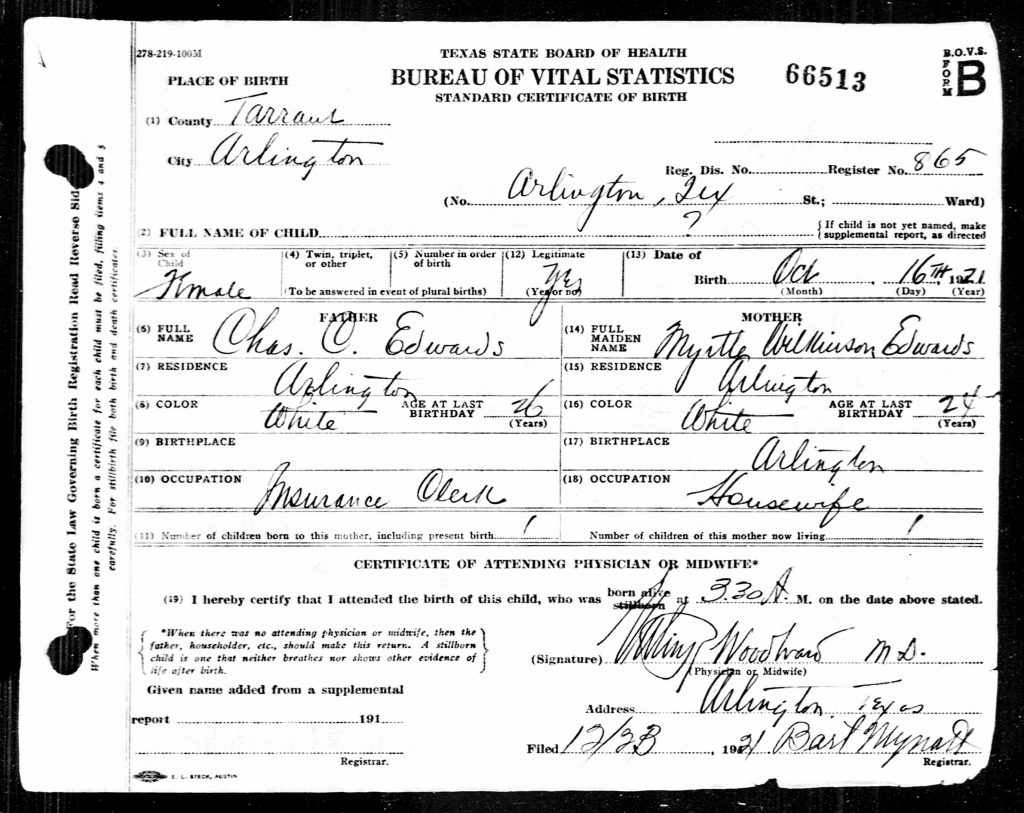 278-219-100M
TEXAS STATE BOARD OF HEALTH
BUREAU OF VITAL STATISTICS
STANDARD CERTIFICATE OF BIRTH
66513
B.O.V.S.
FORM
B
PLACE OF BIRTH
(1) County Tarrant
City Arlington
Reg. Dis. No. Register No. 865
(No. Arlington, Tex St.; Ward)
(2) FULL NAME OF CHILD ? {If child is not yet named, make
supplemental report, as directed
(3) Sex of Child Female
(4) Twin, triplet, or other
(5) Number in order of birth
(To be answered in event of plural births)
(12) Legitimate Yes
(Yes or no)
(13) Date of Birth Oct 16TH 1921
(Month) (Day) (Year)
FATHER
MOTHER
(6) FULL NAME Chas. O. Edwards
(14) FULL MAIDEN NAME Myrtle Wilkinson Edwards
(7) RESIDENCE Arlington
(15) RESIDENCE Arlington
(8) COLOR White AGE AT LAST BIRTHDAY 26 (Years)
(16) COLOR White AGE AT LAST BIRTHDAY 24 (Years)
(9) BIRTHPLACE
(17) BIRTHPLACE Arlington
(10) OCCUPATION Insurance Clerk
(18) OCCUPATION Housewife
(11) Number of children born to this mother, including present birth 1
Number of children of this mother now living 1
CERTIFICATE OF ATTENDING PHYSICIAN OR MIDWIFE*
(19) I hereby certify that I attended the birth of this child, who was born alive stillborn at 3.30 A. M. on the date above stated.
{*When there was no attending physician or midwife, then the
father, householder, etc., should make this return. A stillborn
child is one that neither breathes nor shows other evidence of
life after birth.}
(Signature) Woodward M.D.
(Physician or Midwife)
Given name added from a supplemental
report 191
Registrar.
Address Arlington, Texas
Filed 12/23, 1921 Bart Mynatt
Registrar.
E. L. STECK, AUSTIN
For the State Law Governing Birth Registration Read Reverse Sid
When more than one child is born a certificate for each child must be filed, filling items 4 and 5
carefully. For stillbirth file both birth and death certificates.